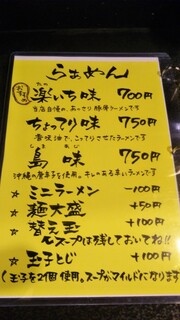 らぁめん
おすすめ
楽いち味 700円
当店自慢の、あっさり豚骨ラーメンです
ちょってり味 750円
香味油で、こってりさせたラーメンです
島味 750円
沖縄の唐辛子を使用。キレのある辛いラーメンです
☆ ミニラーメン －100円
☆ 麺大盛 +50円
☆ 替え玉 +100円
(スープは残しておいてね!!
☆ 玉子とじ +100円
(玉子を2個使用。スープがマイルドになります